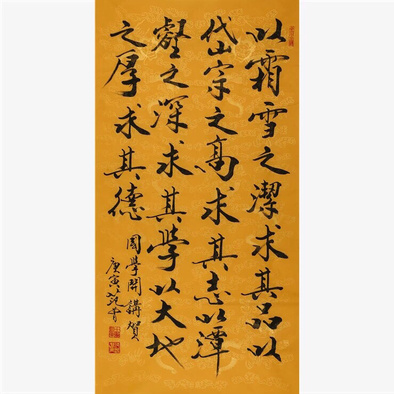 以霜雪之潔求其品以
岱宗之高求其志以潭
壑之深求其學以大地
之厚求其德
國學開講賀
庚寅範曾